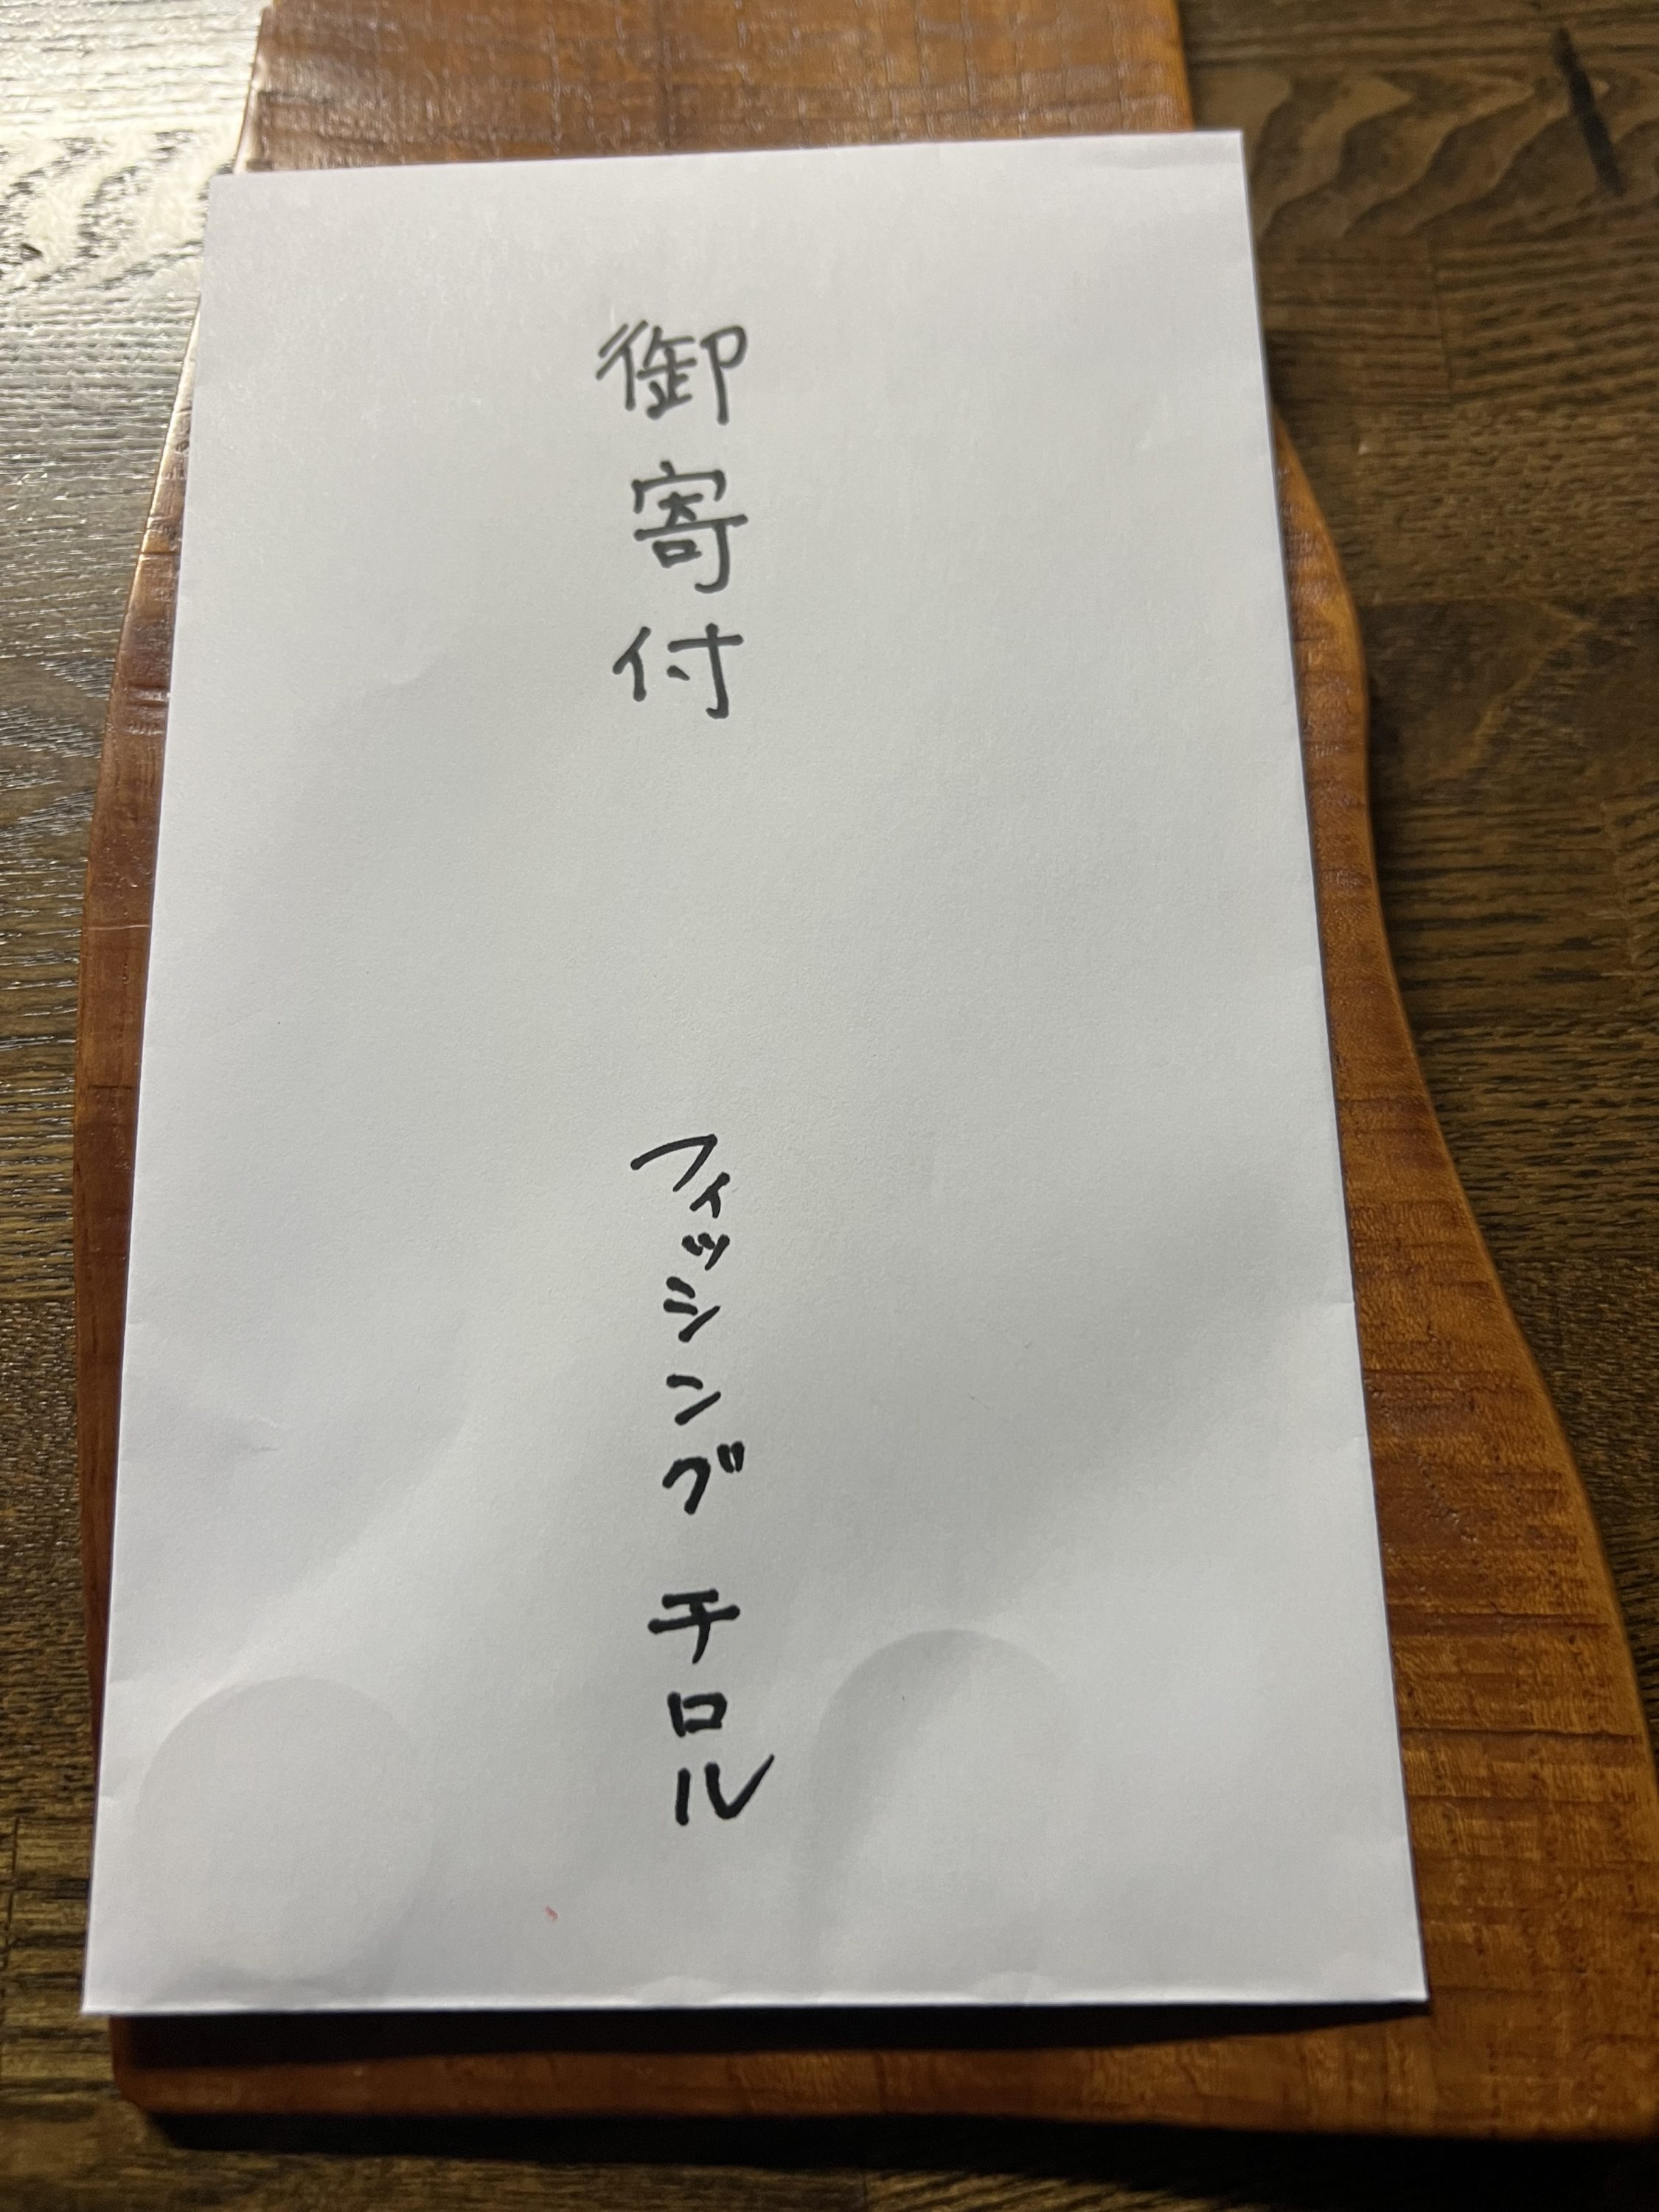 御寄付
フィッシング チロル